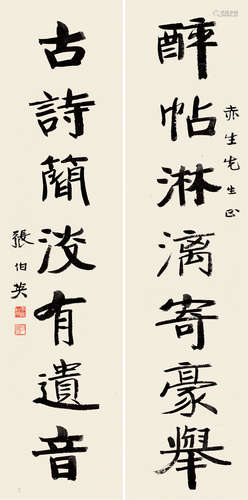 赤生先生正
醉帖淋漓寄豪舉
古詩簡淡有遺音
張伯英